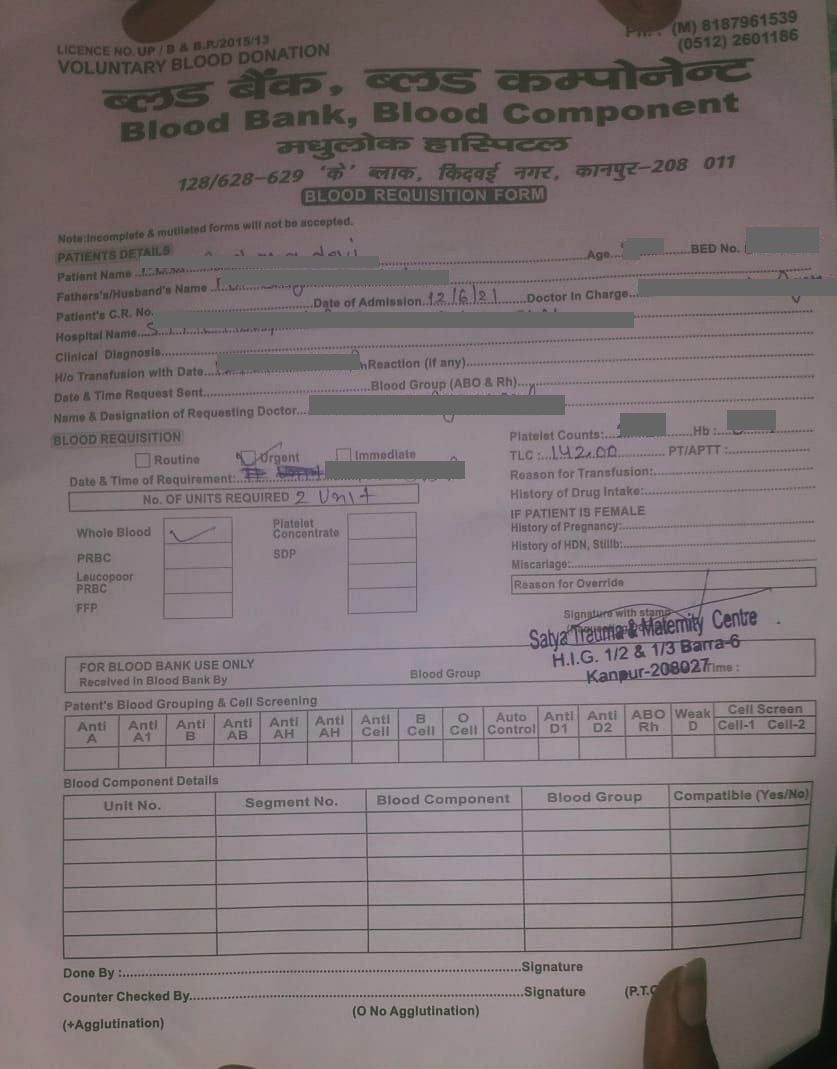 LICENCE NO. UP / B & B.P./2015/13
Ph. : (M) 8187961539
(0512) 2601186
VOLUNTARY BLOOD DONATION
ब्लड बैंक, ब्लड कम्पोनेन्ट
Blood Bank, Blood Component
मधुलोक हास्पिटल
128/628-629 'के' ब्लाक, किदवई नगर, कानपुर-208 011
BLOOD REQUISITION FORM
Note:Incomplete & mutilated forms will not be accepted.
PATIENTS DETAILS
Patient Name Age BED No.
Fathers's/Husband's Name
Patient's C.R. No. Date of Admission 12/6/21 Doctor In Charge
Hospital Name
Clinical Diagnosis
H/o Transfusion with Date Reaction (if any)
Date & Time Request Sent Blood Group (ABO & Rh)
Name & Designation of Requesting Doctor
BLOOD REQUISITION
Routine Urgent Immediate
Date & Time of Requirement:
No. OF UNITS REQUIRED 2 Unit
Whole Blood Platelet Concentrate
PRBC SDP
Leucopoor PRBC
FFP
Platelet Counts: Hb :
TLC : 14200 PT/APTT :
Reason for Transfusion:
History of Drug Intake:
IF PATIENT IS FEMALE
History of Pregnancy:
History of HDN, Stillb:
Miscariage:
Reason for Override
Signature with stamp
Satya Trauma & Maternity Centre
H.I.G. 1/2 & 1/3 Barra-6
Kanpur-208027
FOR BLOOD BANK USE ONLY
Received in Blood Bank By Blood Group Time :
Patent's Blood Grouping & Cell Screening
Anti A Anti A1 Anti B Anti AB Anti AH Anti AH Anti Cell B Cell O Cell Auto Control Anti D1 Anti D2 ABO Rh Weak D Cell Screen Cell-1 Cell-2
Blood Component Details
Unit No. Segment No. Blood Component Blood Group Compatible (Yes/No)
Done By : Signature
Counter Checked By Signature (P.T.O
(+Agglutination) (O No Agglutination)